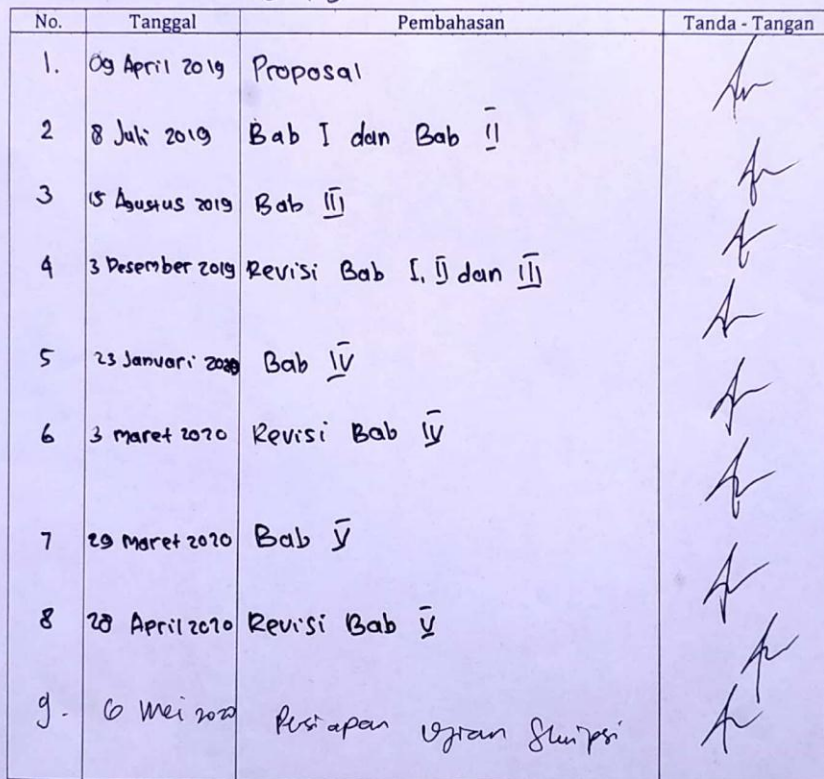 No. Tanggal Pembahasan Tanda - Tangan
1. 09 April 2019 Proposal
2 8 Juli 2019 Bab I dan Bab II
3 15 Agustus 2019 Bab III
4 3 Desember 2019 Revisi Bab I, II dan III
5 23 Januari 2020 Bab IV
6 3 maret 2020 Revisi Bab IV
7 29 maret 2020 Bab V
8 28 April 2020 Revisi Bab V
9. 6 Mei 2020 Persiapan Ujian Skripsi